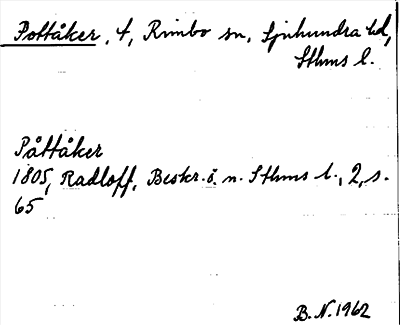 Pottåker, t, Rimbo sn, Sjuhundra hd,
Sthms l.
Påttåker
1805, Radloff, Beskr. ö. n. Sthms l., 2, s.
65
B.N. 1962